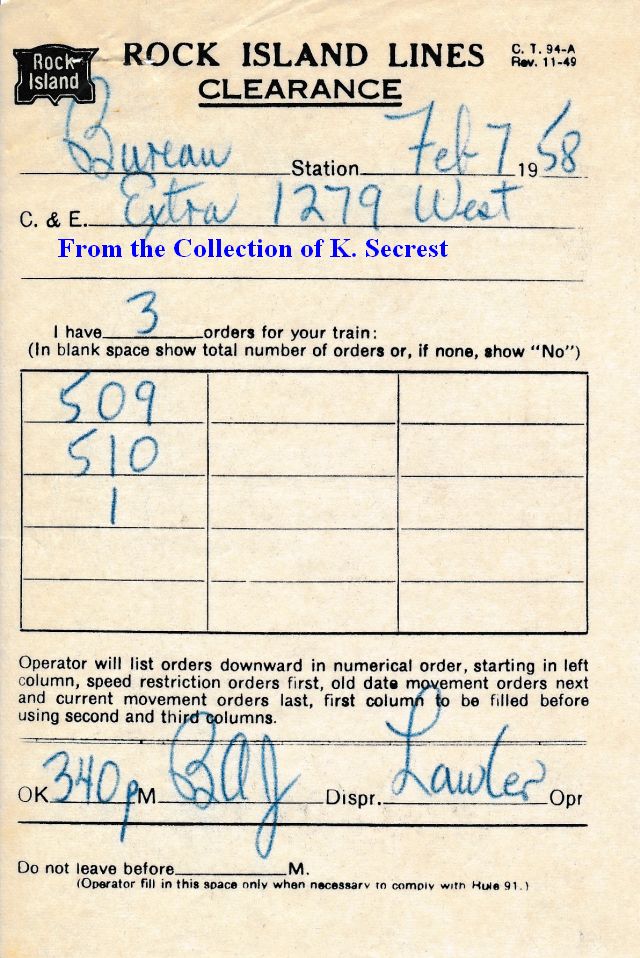 Rock Island
ROCK ISLAND LINES
C. T. 94-A
Rev. 11-49
CLEARANCE
Bureau Station Feb 7 1958
C. & E. Extra 1279 West
From the Collection of K. Secrest
I have 3 orders for your train:
(In blank space show total number of orders or, if none, show "No")
509
510
1
Operator will list orders downward in numerical order, starting in left
column, speed restriction orders first, old date movement orders next
and current movement orders last, first column to be filled before
using second and third columns.
OK 340 pM BAJ Dispr. Lawler Opr
Do not leave before M.
(Operator fill in this space only when necessary to comply with Rule 91.)